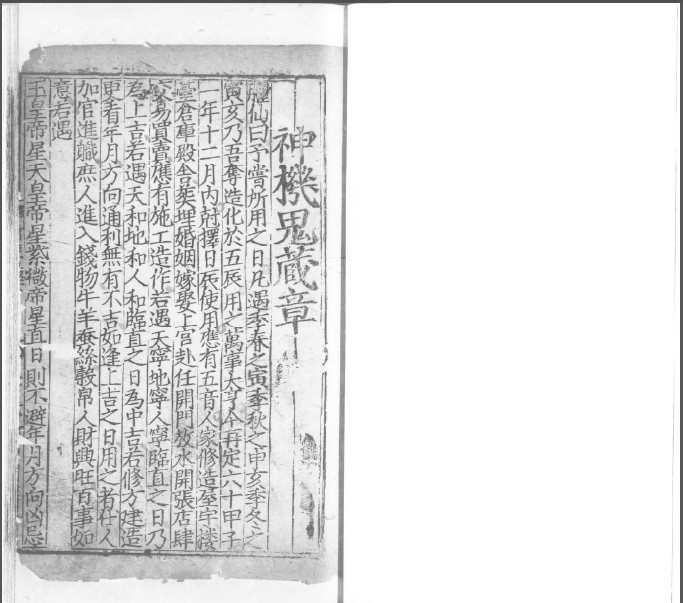 神機鬼蔵章
臞仙曰予嘗所用之日凡遇季春之寅季秋之申亥季冬之
寅亥乃吾奪造化於五辰用之萬事大亨今再定六十甲子
一年十二月内尅擇日辰使用應有五音人家修造屋宇楼
臺倉庫殿舎𦵏埋婚姻嫁娶上官赴任開門放水開張店肆
交易買賣應有施工造作若遇天寧地寧人寧臨直之日乃
為上吉若遇天和地和人和臨直之日為中吉若修方建造
更看年月方向通利無有不吉如逢上吉之日用之者仕人
加官進職庶人進入錢物牛羊蚕絲穀帛人財興旺百事如
意若遇
玉皇帝星天皇帝星紫微帝星直日則不避年月方向凶忌